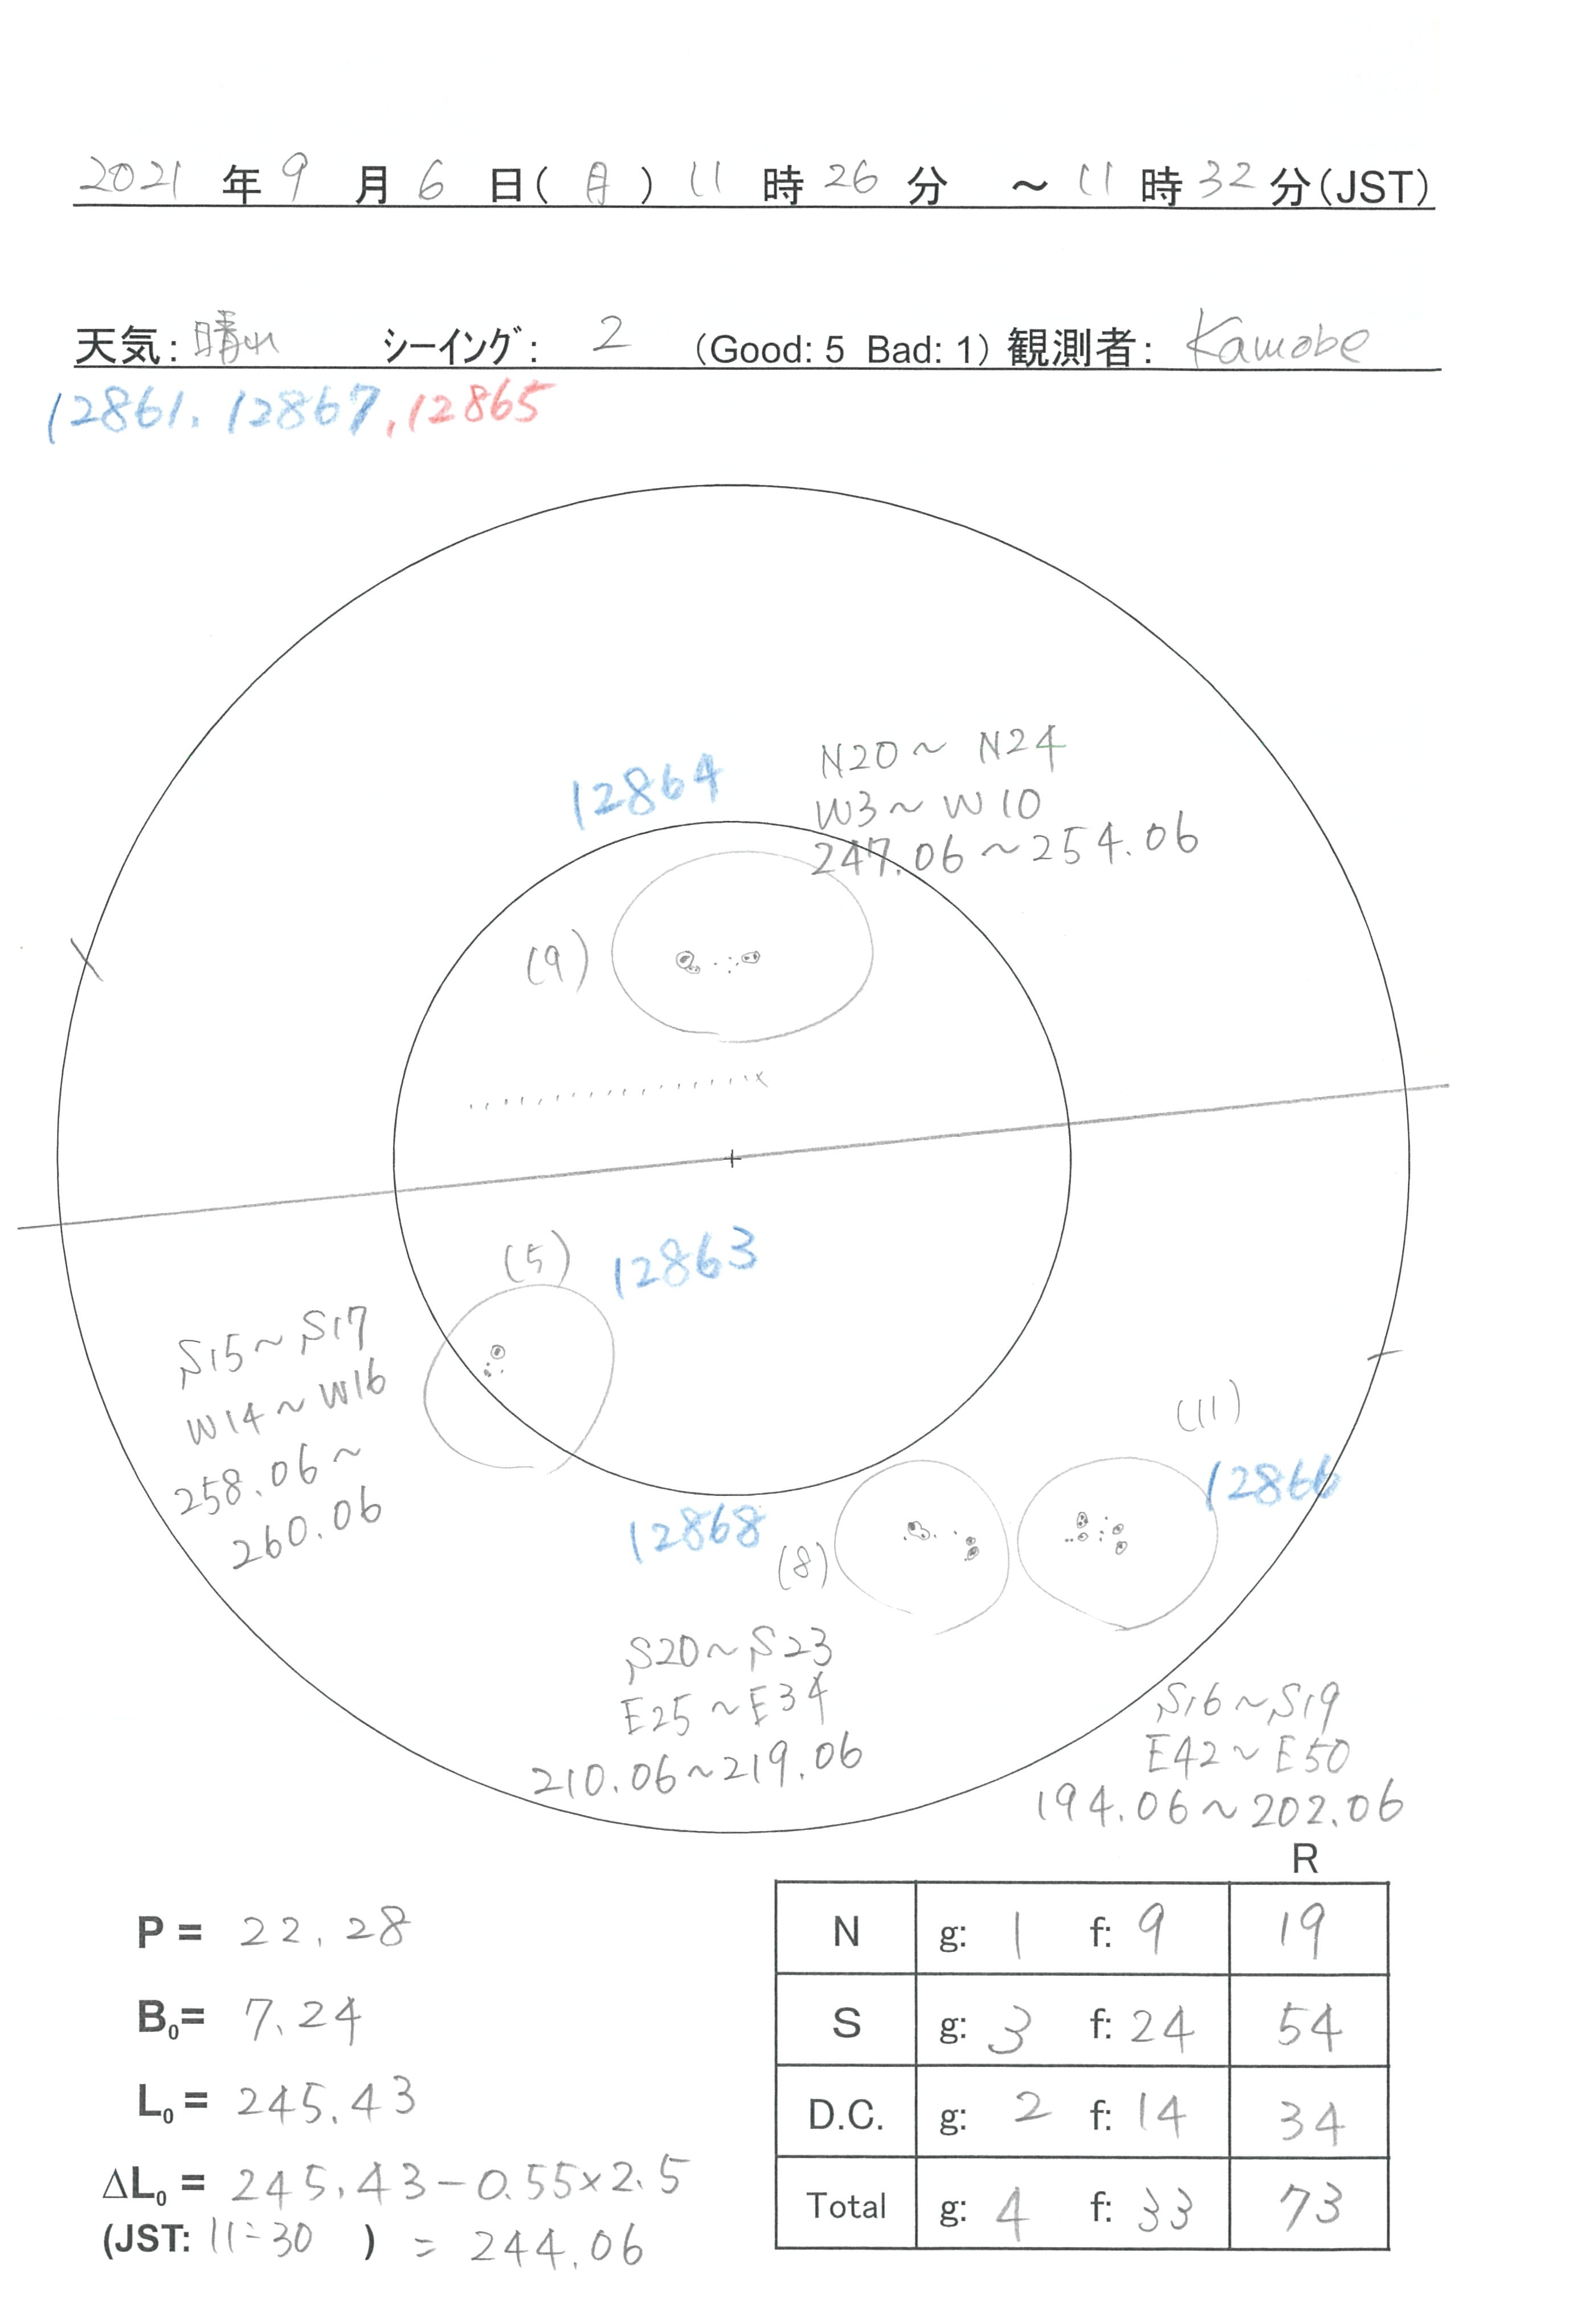 2021 年 9 月 6 日(月) 11 時 26 分 ~ 11 時 32 分(JST)
天気: 晴れ シーイング: 2 (Good: 5 Bad: 1) 観測者: Kamobe
12861. 12867, 12865
12864
N20~N24
W3~W10
247.06~254.06
(9)
(5)
12863
S15~S17
W14~W16
258.06~
260.06
(11)
12866
12868
(8)
S20~S23
E25~E34
210.06~219.06
S16~S19
E42~E50
194.06~202.06
R
N g: 1 f: 9 19
S g: 3 f: 24 54
D.C. g: 2 f: 14 34
Total g: 4 f: 33 73
P = 22.28
B0= 7.24
L0 = 245.43
ΔL0 = 245.43-0.55×2.5
(JST: 11:30 ) = 244.06